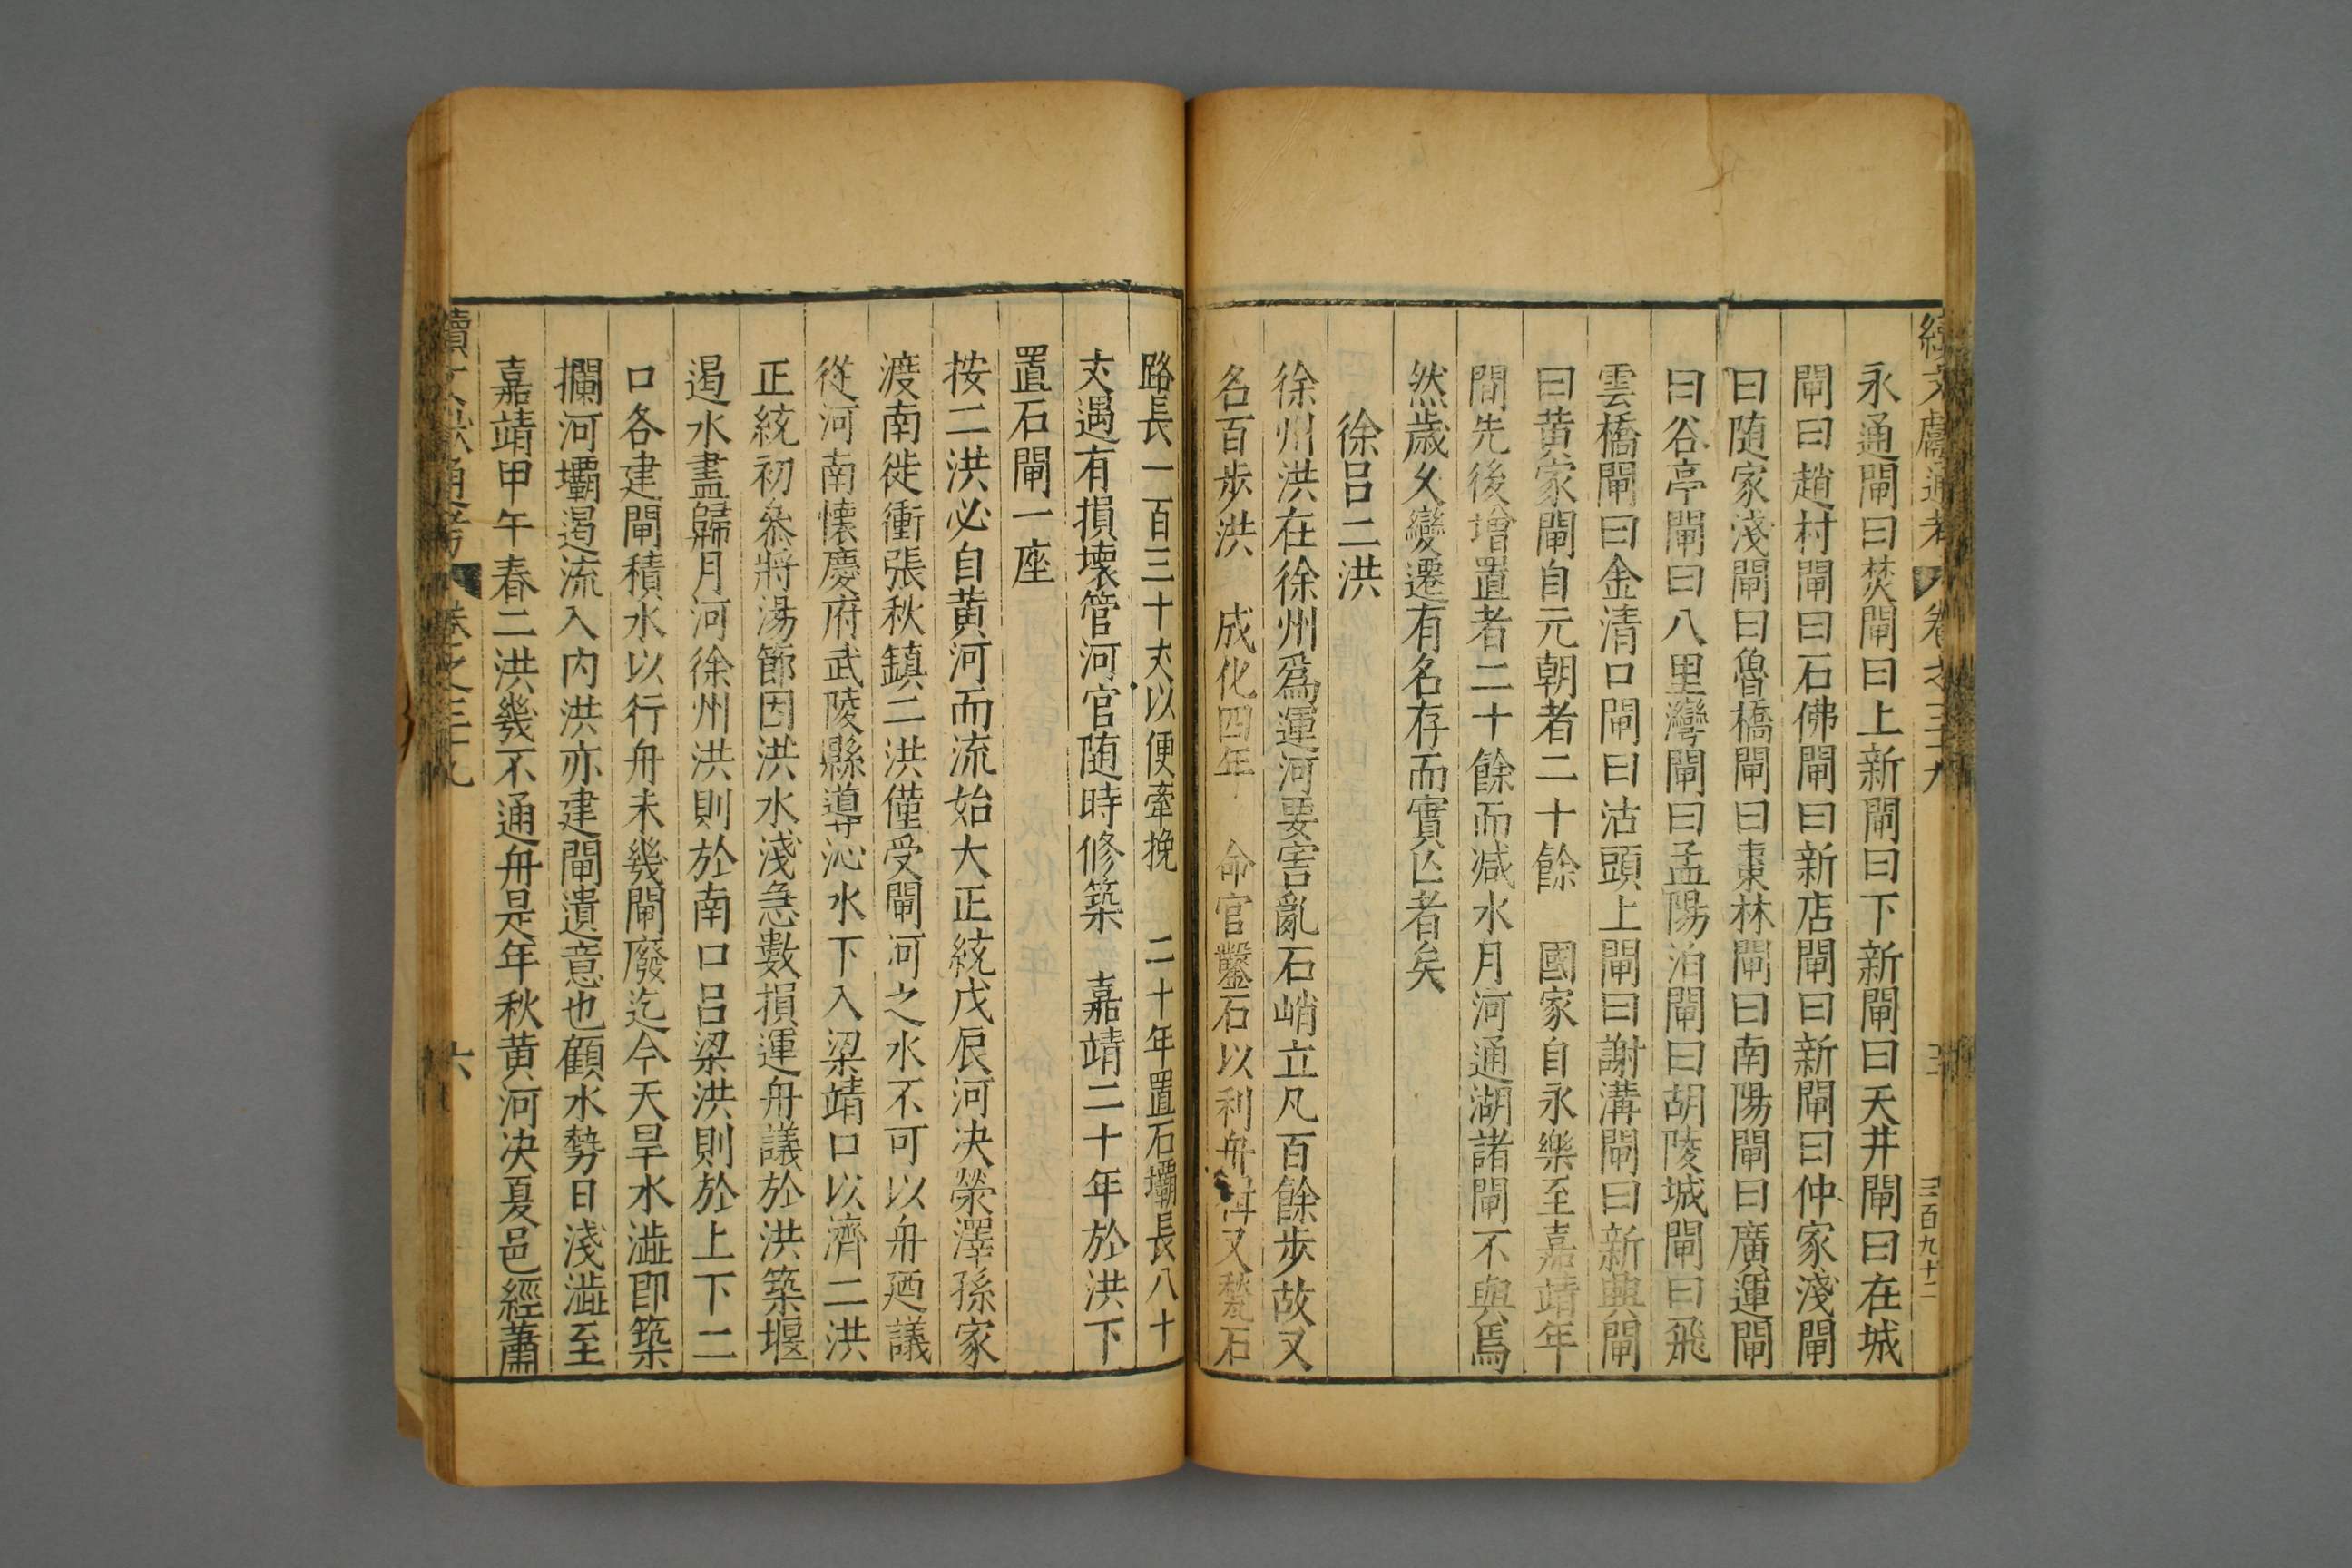 續文獻通考 卷之三十九 三百九十二
永通閘曰焚閘曰上新閘曰下新閘曰天井閘曰在城
閘曰趙村閘曰石佛閘曰新店閘曰新閘曰仲家淺閘
曰随家淺閘曰魯橋閘曰棗林閘曰南陽閘曰廣運閘
曰谷亭閘曰八里灣閘曰孟陽泊閘曰胡陵城閘曰飛
雲橋閘曰金清口閘曰沽頭上閘曰謝溝閘曰新興閘
曰黄家閘自元朝者二十餘 國家自永樂至嘉靖年
間先後增置者二十餘而减水月河通湖諸閘不與焉
然歲久變遷有名存而實亾者矣
徐呂二洪
徐州洪在徐州爲運河要害亂石峭立凡百餘步故又
名百步洪 成化四年 命官鑿石以利舟 又甃石
路長一百三十丈以便牽挽 二十年置石壩長八十
丈遇有損壊管河官随時修築 嘉靖二十年於洪下
置石閘一座
按二洪必自黄河而流始大正統戊辰河决滎澤孫家
渡南徙衝張秋鎮二洪僅受閘河之水不可以舟廼議
從河南懐慶府武陵縣導沁水下入梁靖口以濟二洪
正統初叅將湯節因洪水淺急數損運舟議於洪築堰
遏水盡歸月河徐州洪則於南口呂梁洪則於上下二
口各建閘積水以行舟未幾閘廢迄今天旱水澁即築
攔河壩遏流入内洪亦建閘遺意也顧水勢日淺澁至
嘉靖甲午春二洪幾不通舟是年秋黄河决夏邑經蕭
續文獻通考 卷之三十九 六